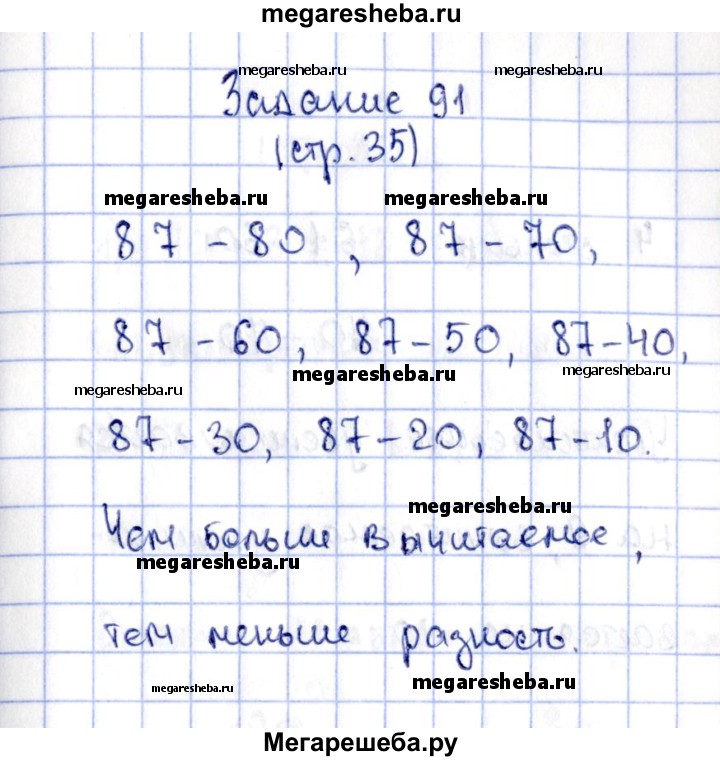 megaresheba.ru
megaresheba.ru megaresheba.ru
Задание 91
(стр. 35)
megaresheba.ru megaresheba.ru
87 - 80 , 87 - 70,
87 - 60, 87 - 50, 87 - 40,
megaresheba.ru megaresheba.ru
megaresheba.ru
87 - 30, 87 - 20, 87 - 10.
megaresheba.ru
Чем больше вычитаемое,
megaresheba.ru
тем меньше разность.
megaresheba.ru megaresheba.ru
Мегарешеба.ру